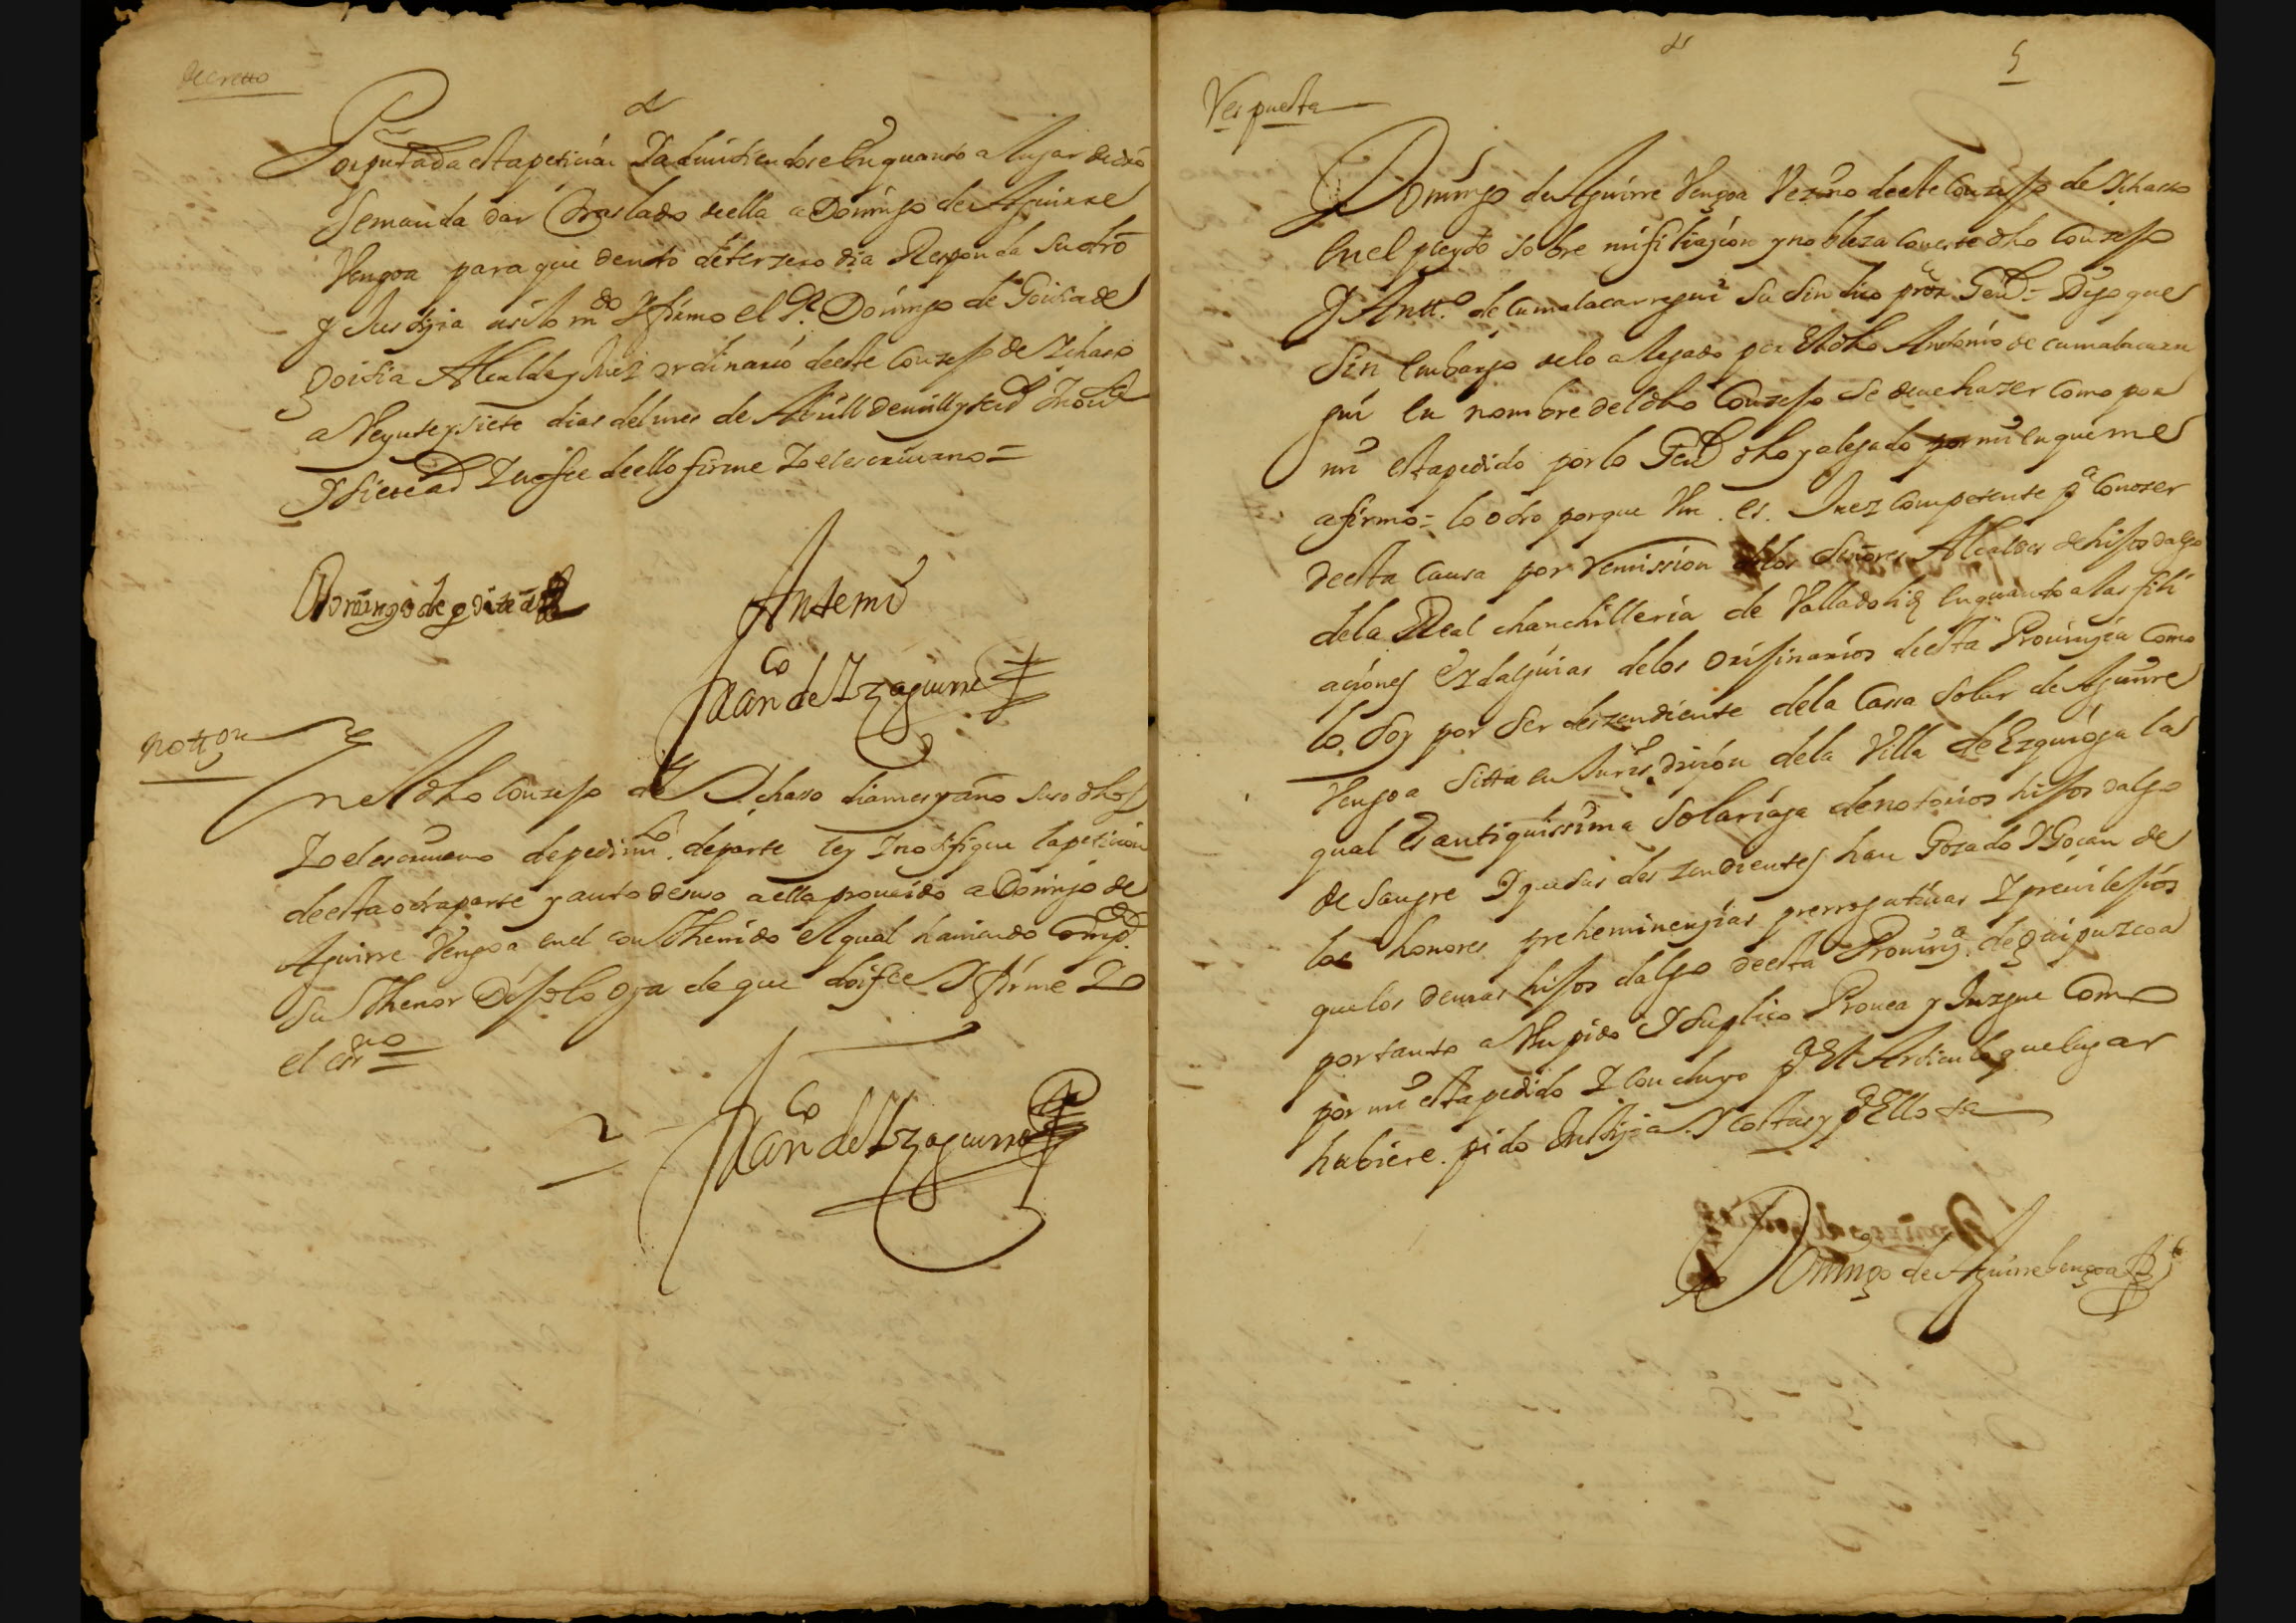 decretto
Por pressentada esta peticion Y admitiendose En quanto a lugar de dro
se manda dar Traslado della a Domingo de Aguirre
Vengoa para que dentro de terzero dia Responda su dro
y Justiçia assi lo m.do Y firmo el S.r Domingo de Goitia de
goitia Alcalde y Juez ordinario deeste Conzejo de Ichasso
a Veynte y siete dias del mes de Abrill de mill y seis.os Y nou.ta
Y siete a.s Y en fee deello firme Yo el escriuano =
Domingo de goitia
Antemi
Ju.an fran.co de Yzaguirre
nott.on
En el dho Conzejo de Ychasso dia mes y año suso dhos
Yo el escriuano de pedim.to de parte ley Y notifique la peticion
deesta otra parte y auto de suso a ella proueido a Domingo de
Aguirre Vengoa en el conthenido El qual hauiendo Comp.do
su Thenor Dijo lo oya de que doi fee Y firme Yo
el ess.no =
fran.co de Yzaguirre
5
Respuesta
Domingo de Aguirre Vengoa Vezino deeste Conzejo de Ichasso
En el pleyto sobre mi filiaçion y nobleza con este dho Conzejo
Y Ant.o de Çumalacarregui su sindico pror Gen.l = Digo que
sin embargo de lo alegado por El dho Antonio de Çumalacarre
gui en nombre del dho Conzejo se deue hazer Como por
mi esta pedido por lo Gen.l dho y alegado por mi en que me
afirmo = lo otro porque Vm. es. Juez Competente p.a Conozer
deesta Causa por remission de los Señores Alcaldes de hijosdalgo
de la Real chanchilleria de Valladolid en quanto a las fili
açiones E ydalguias de los orijinarios deesta Prouinçia Como
lo soy por ser deszendiente de la Cassa solar de Aguirre
Vengoa sitta en Jurisdiçion de la Villa de Ezquioga la
qual Es antiquissima solariega de notorios hijos dalgo
de sangre Y que sus deszendientes han Gozado Y Gozan de
los honores preheminençias prerrogatiuas Y preuilejios
que los demas hijos dalgo deesta Prouinç.a de guipuzcoa
por tanto a Vm pido Y suplico Prouea y Juzgue Como
por mi esta pedido Y concluyo p.a El Articulo que lugar
hubiere. pido Justiçia Y costas y p.a Ello ta
Domingo de Aguirrebengoa